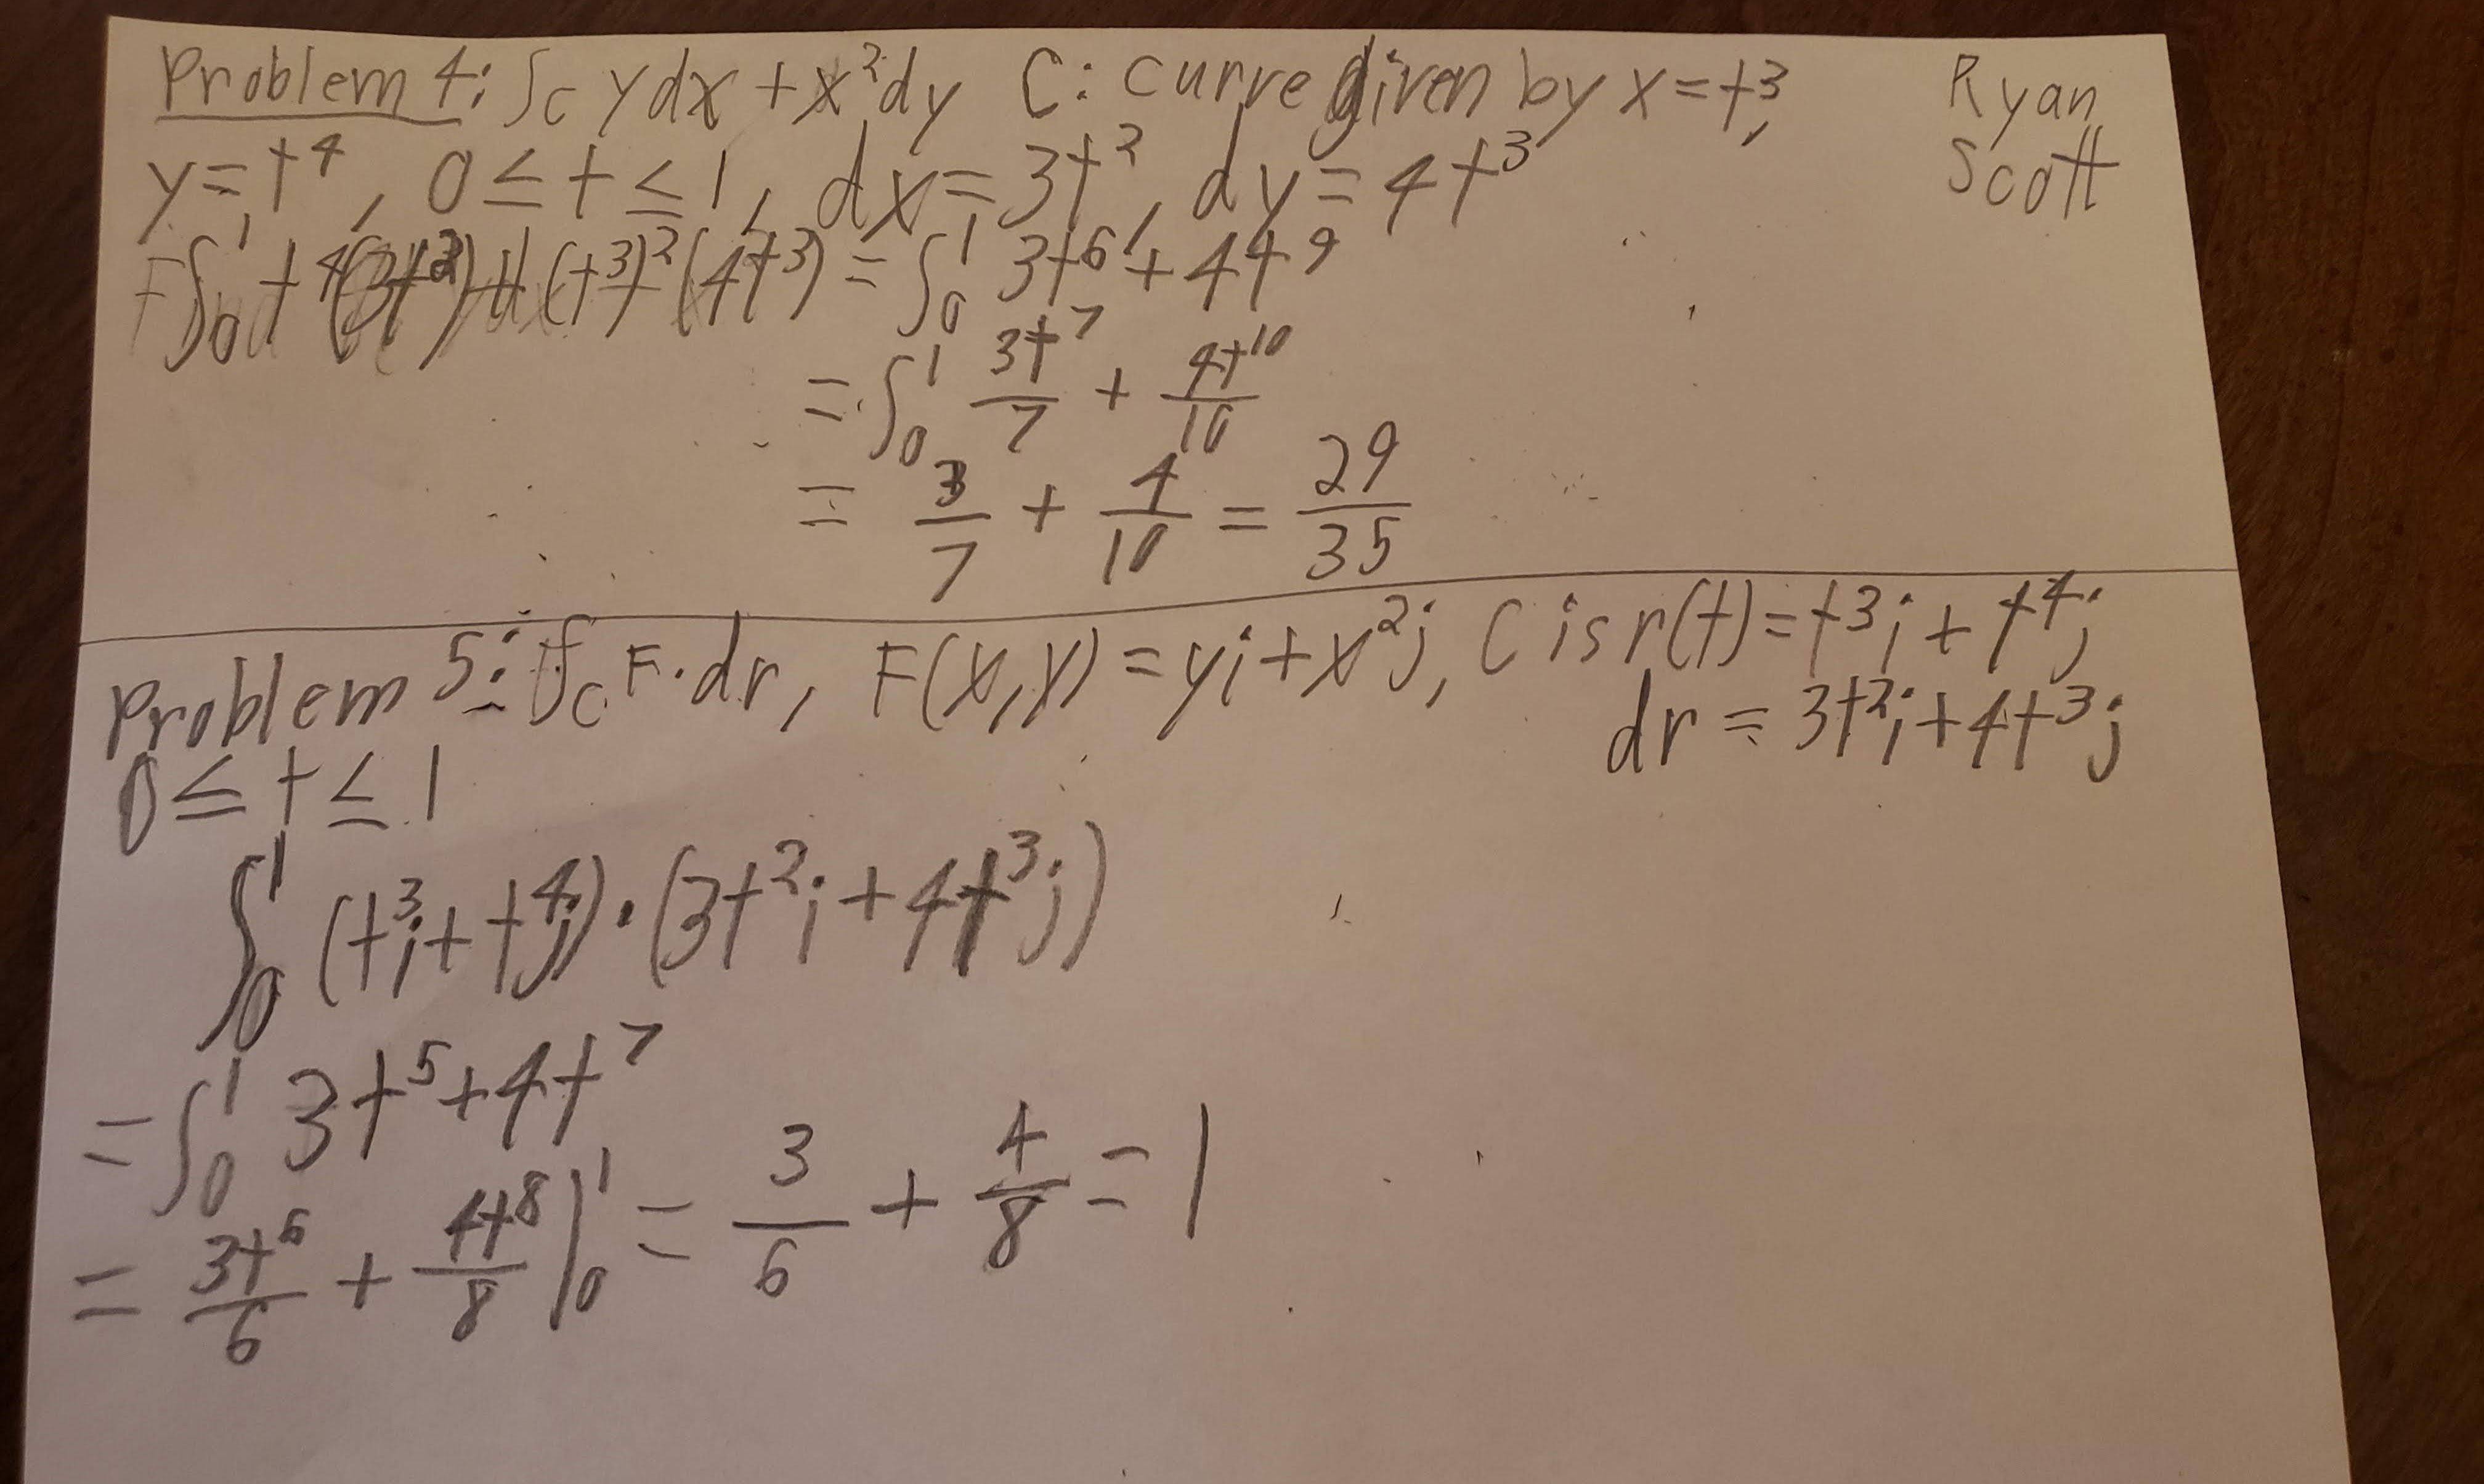 Problem 4: ∫c ydx + x²dy C: curve given by x = t³,
Ryan
Scott
y = t⁴, 0 ≤ t ≤ 1, dx = 3t², dy = 4t³
∫₀¹ t⁴(3t²) + (t³)²(4t³) = ∫₀¹ 3t⁶ + 4t⁹
= ∫₀¹ 3t⁷/7 + 4t¹⁰/10
= 3/7 + 4/10 = 29/35
Problem 5: ∫c F·dr, F(x,y) = yi + x²j, C is r(t) = t³i + t⁴j
dr = 3t²i + 4t³j
0 ≤ t ≤ 1
∫₀¹ (t³i + t⁴j)·(3t²i + 4t³j)
= ∫₀¹ 3t⁵ + 4t⁷
= 3t⁶/6 + 4t⁸/8 |₀¹ = 3/6 + 4/8 = 1